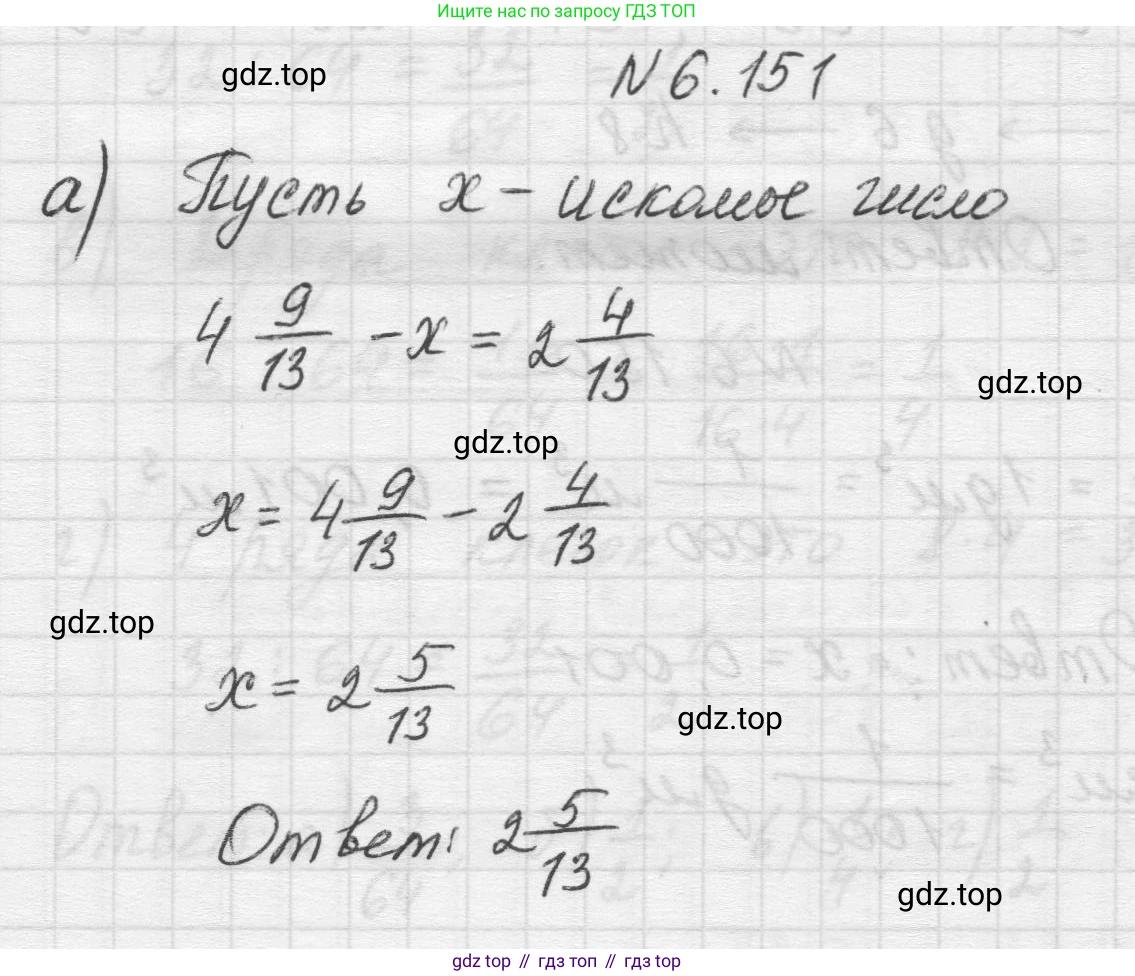 Ищите нас по запросу ГДЗ ТОП
gdz.top
N 6.151
а) Пусть x - искомое число
4 9/13 - x = 2 4/13
gdz.top
gdz.top
x = 4 9/13 - 2 4/13
gdz.top
x = 2 5/13
gdz.top
Ответ: 2 5/13
gdz.top
gdz top // гдз топ // gdz top